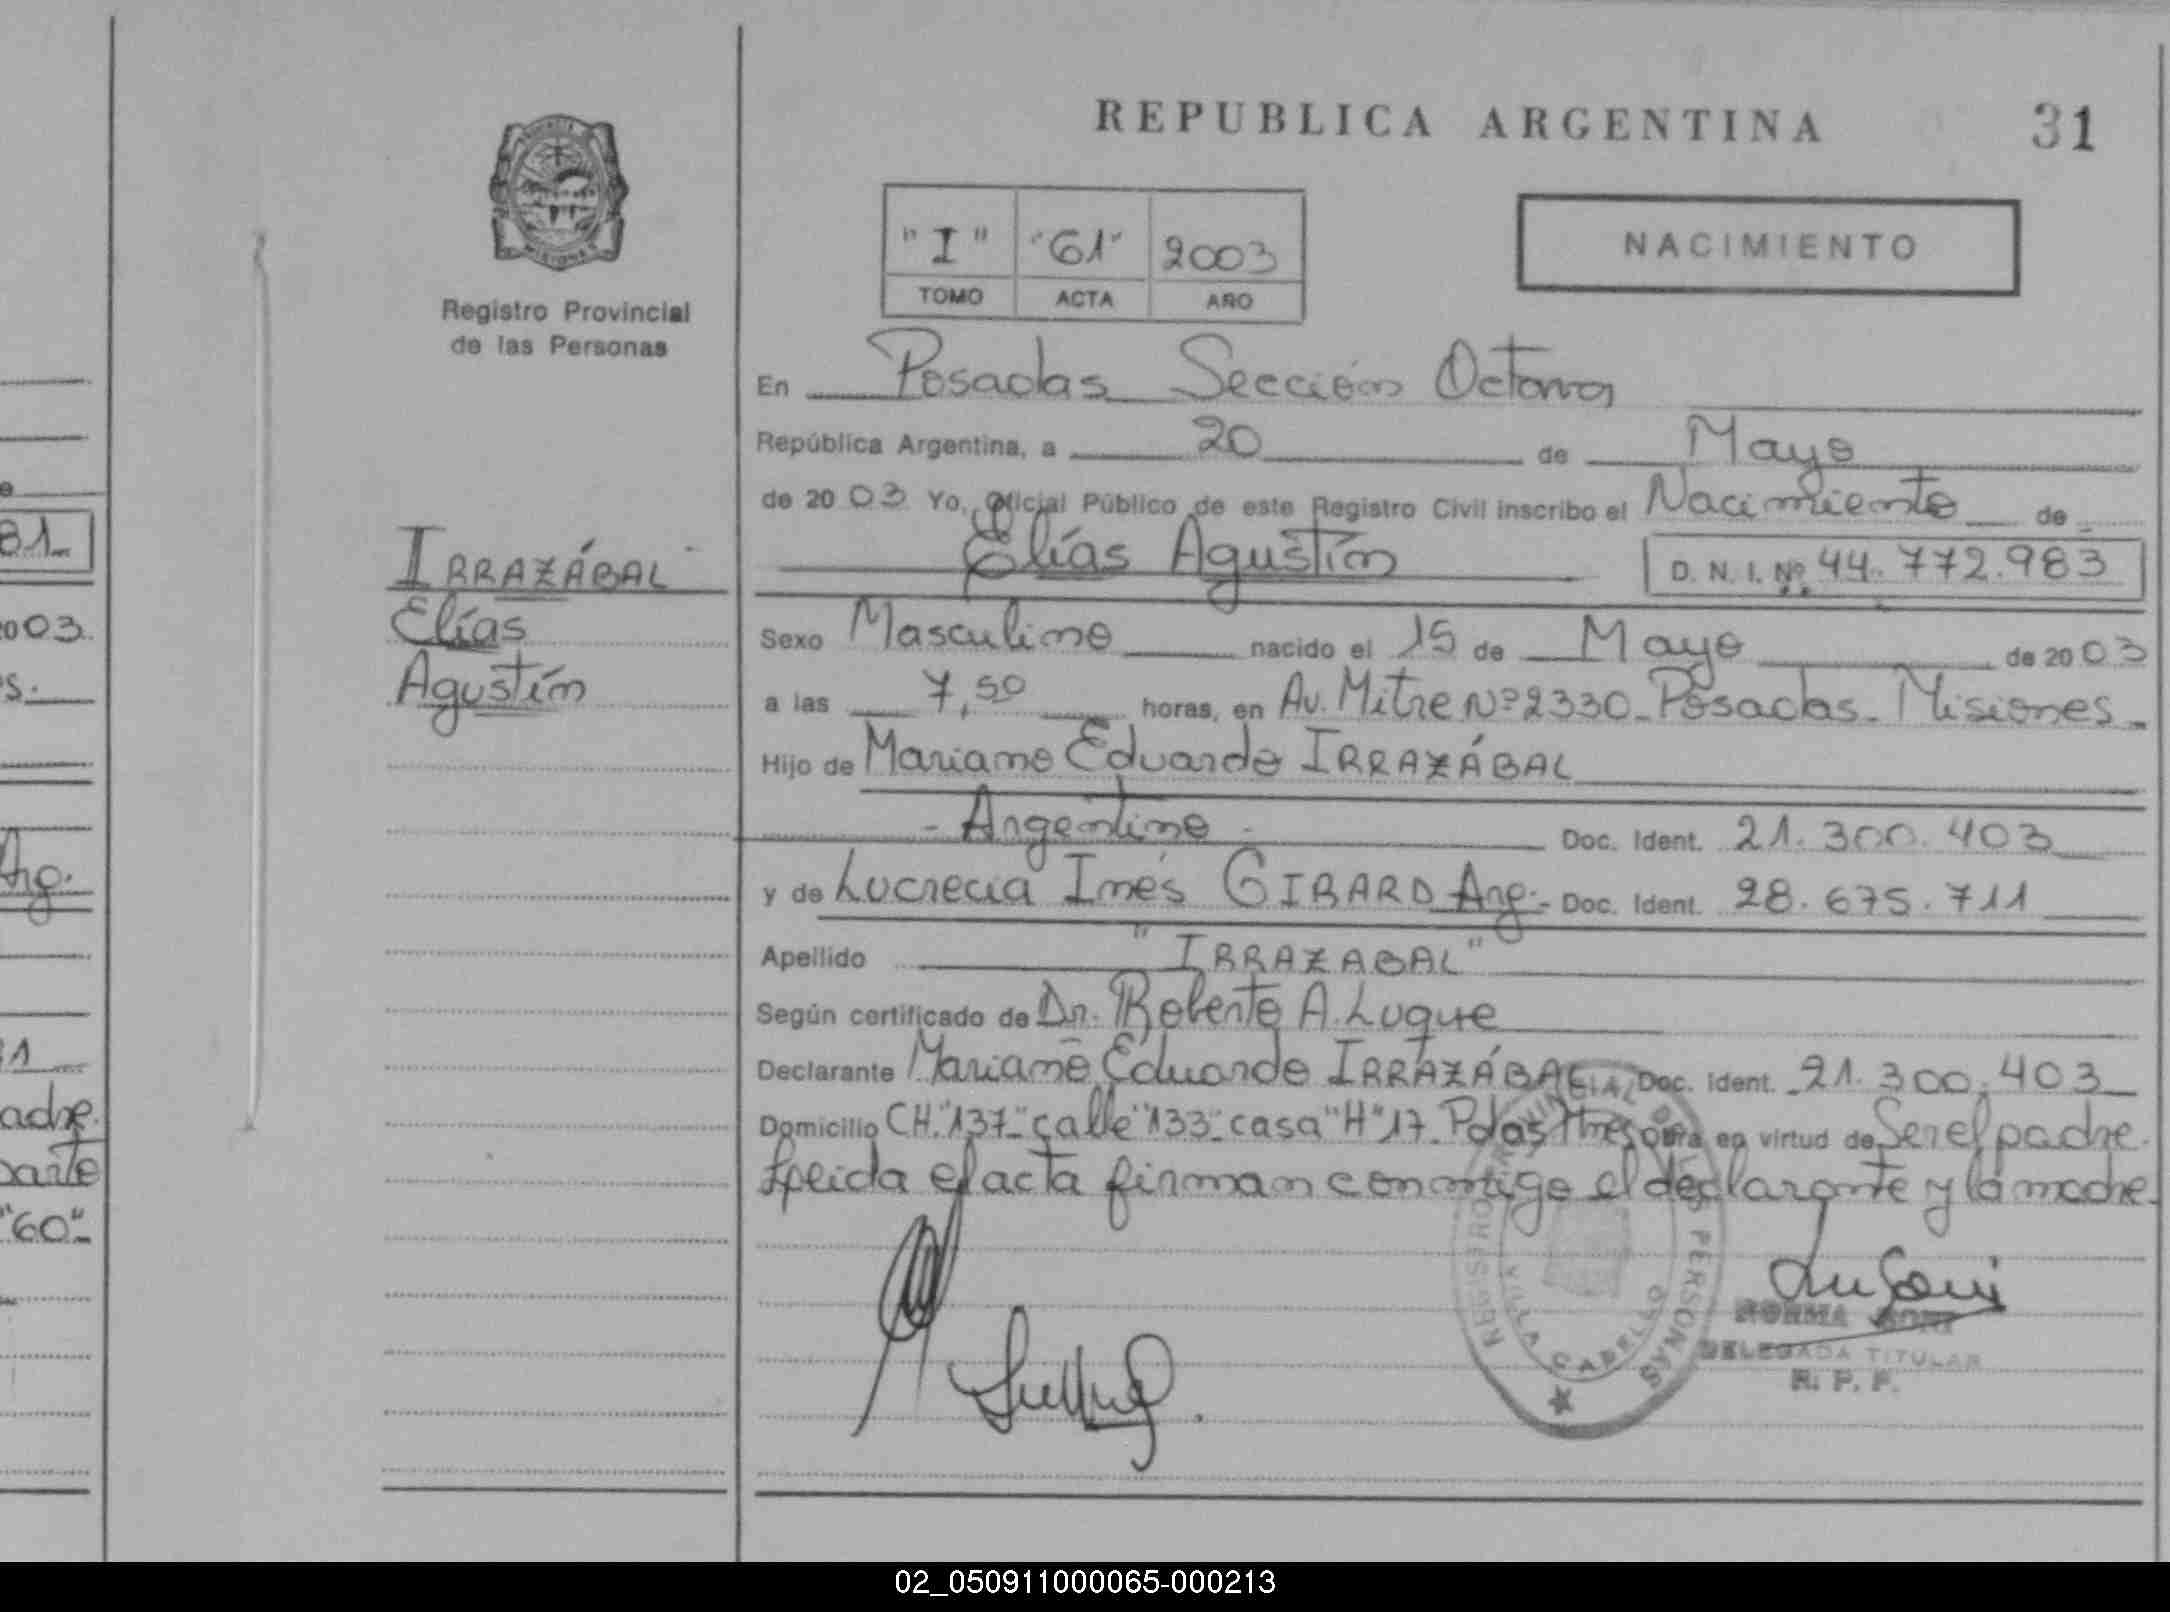 REPUBLICA ARGENTINA
31
Registro Provincial
de las Personas
"I" "61" 2003
TOMO ACTA AÑO
NACIMIENTO
En Posadas Sección Octava
República Argentina, a 20 de Mayo
de 2003 Yo, Oficial Público de este Registro Civil inscribo el Nacimiento de
Elías Agustín D. N. I. Nº 44.772.983
IRRAZÁBAL
Elías
Agustín
Sexo Masculino nacido el 15 de Mayo de 2003
a las 7,50 horas, en Av. Mitre Nº 2330 - Posadas - Misiones -
Hijo de Mariano Eduardo IRRAZÁBAL
- Argentino - Doc. Ident. 21.300.403
y de Lucrecia Inés GIRARD Arg. - Doc. Ident. 28.675.711
Apellido "IRRAZABAL"
Según certificado de Dr. Roberto A. Luque
Declarante Mariano Eduardo IRRAZÁBAL Doc. Ident. 21.300.403
Domicilio CH. "137" - calle "133" - casa "H" 17 - Pdas Mnes obra en virtud de Ser el padre.
Leida el acta firman conmigo el declarante y la madre.
REGISTRO PROVINCIAL DE LAS PERSONAS
VILLA CABELLO
NORMA GORI
DELEGADA TITULAR
R. P. P.
81
2003.
s.
Arg.
1
adre.
parte
"60"
02_050911000065-000213